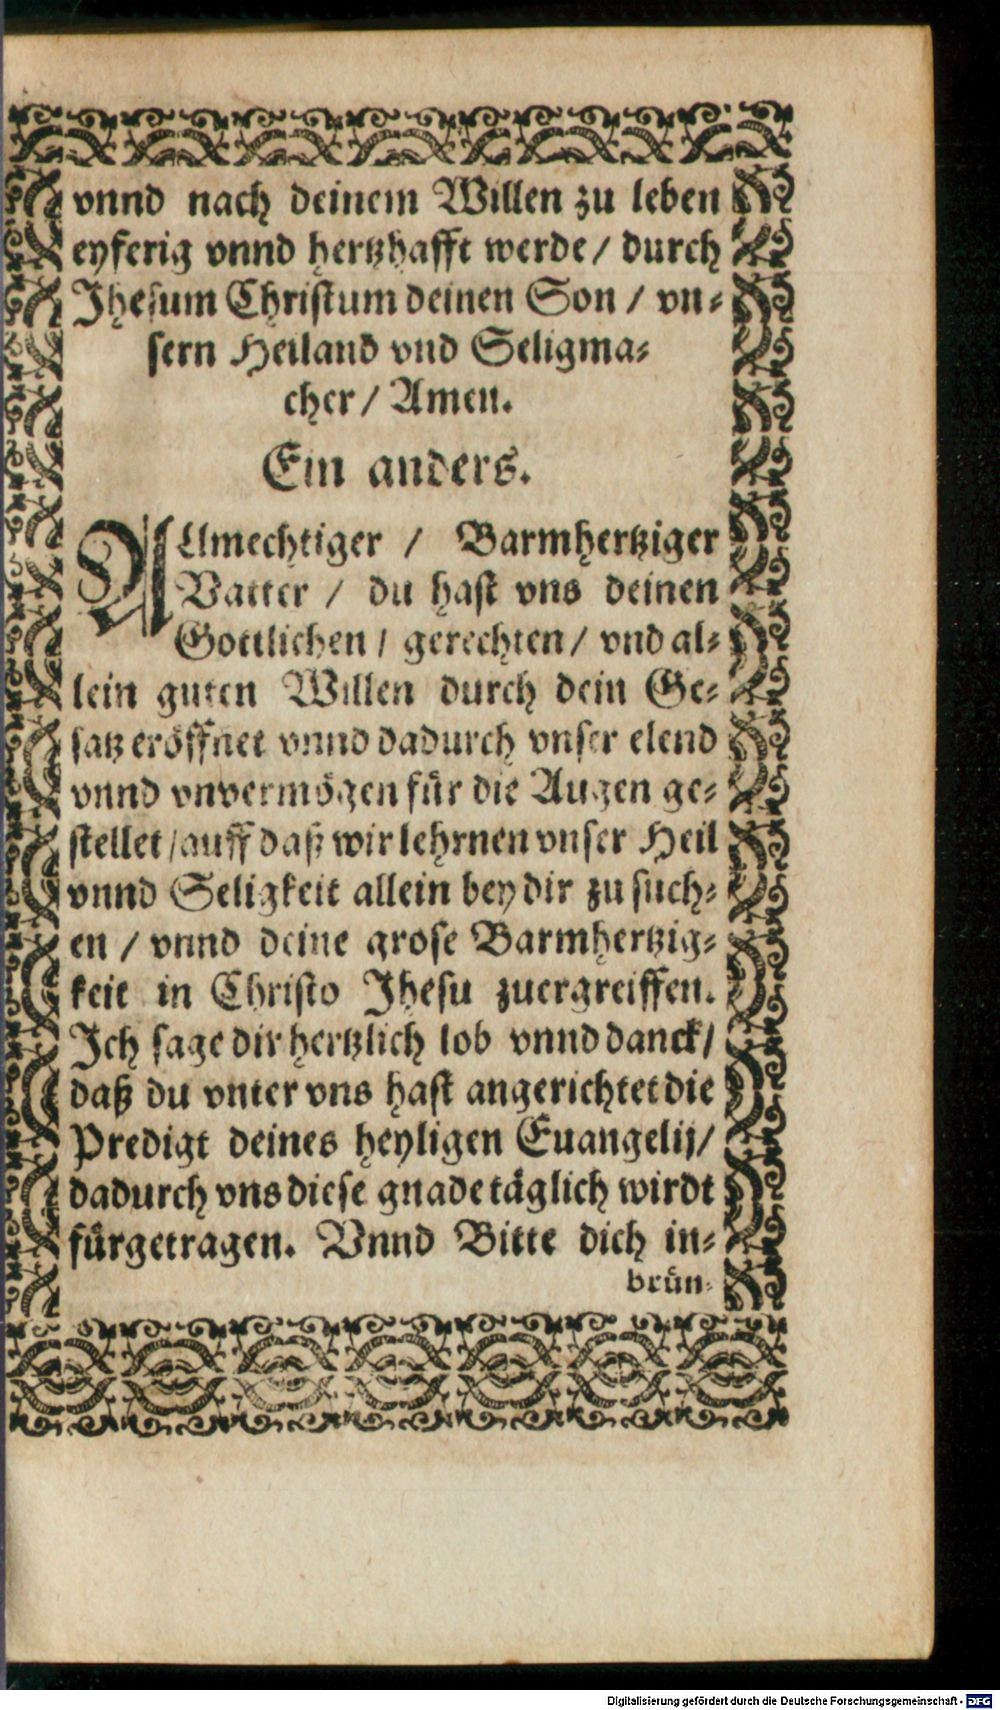 vnnd nach deinem Willen zu leben
eyferig vnnd hertzhafft werde / durch
Jhesum Christum deinen Son / vn⸗
sern Heiland vnd Seligma⸗
cher / Amen.
Ein anders.
Allmechtiger / Barmhertziger
Vatter / du hast vns deinen
Göttlichen / gerechten / vnd al⸗
lein guten Willen durch dein Ge⸗
satz eröffnet vnnd dadurch vnser elend
vnnd vnvermögen für die Augen ge⸗
stellet / auff daß wir lehrnen vnser Heil
vnnd Seligkeit allein bey dir zu such⸗
en / vnnd deine grose Barmhertzig⸗
keit in Christo Jhesu zuergreiffen.
Jch sage dir hertzlich lob vnnd danck /
daß du vnter vns hast angerichtet die
Predigt deines heyligen Euangelij /
dadurch vns diese gnade täglich wirdt
fürgetragen. Vnnd Bitte dich in⸗
brün⸗
Digitalisierung gefördert durch die Deutsche Forschungsgemeinschaft - DFG